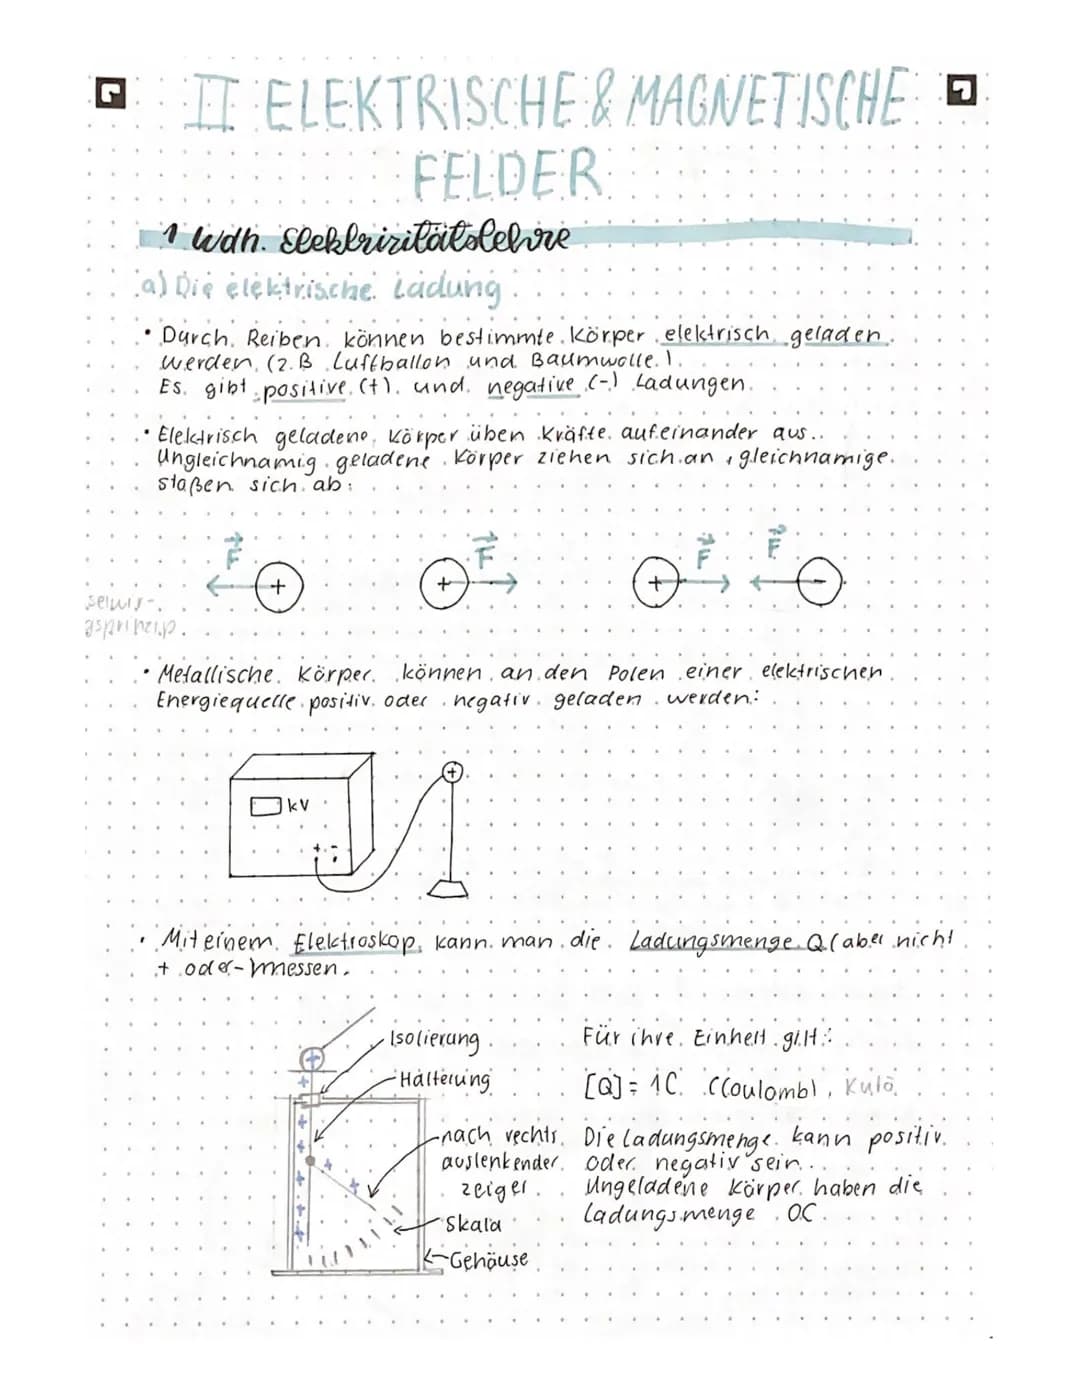 II ELEKTRISCHE & MAGNETISCHE
FELDER
1 Wdh. Elektrizitätslehre
a) Die elektrische Ladung
• Durch Reiben können bestimmte Körper elektrisch geladen
werden (z.B. Luftballon und Baumwolle.).
Es gibt positive (+) und negative (-) Ladungen.
• Elektrisch geladene Körper üben Kräfte aufeinander aus.
Ungleichnamig geladene Körper ziehen sich an, gleichnamige
staßen sich ab:
F F F F
+ + + -
• Metallische Körper können an den Polen einer elektrischen
Energiequelle positiv oder negativ geladen werden:
+
kV
+ -
• Mit einem Elektroskop kann man die Ladungsmenge Q (aber nicht
+ oder -) messen.
Isolierung
Halterung
nach rechts
auslenkender
zeiger
Skala
Gehäuse
Für ihre Einheit gilt:
[Q] = 1C (Coulomb),
Die Ladungsmenge kann positiv
oder negativ sein.
Ungeladene Körper haben die
Ladungsmenge 0C.